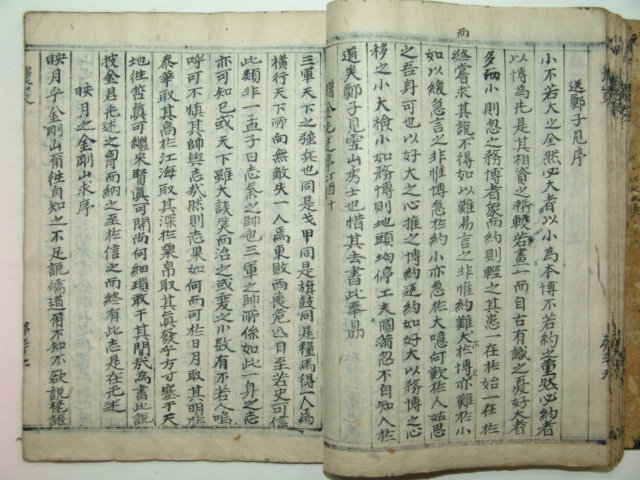 送鄭子見序
小不若大之全然必大者以小為本博不若約之重然必約者
以博為先是其相資之稱較若畫一而自古有識之憂好大者
多而小則忽之務博者衆而約則輕之其患一在於始一在於
終嘗求其說不得如以難易言之非惟約難大於博亦難於小
如以緩急言之非惟博急於約小亦急於大噫何歎於人姑思
之吾身可也以好大之心推之博約返約如好大以務博之心
移之小大檢小如務博則地頭均停工夫圓滿忽不自知入於
道矣鄭子見靈山秀士也惜其去書此奉勗
三軍天下之強兵也同是戈甲同是旗鼓同是糧馬得一人焉
橫行天下所向無敵失一人焉東敗西喪危亡日至若史可信
此類非一孟子曰志氣之帥也三軍之帥所係如此一身之志
亦可知已或天下雖大談笑而治之或變之小數有不若人嗚
呼可不慎其帥與志哉然則志果如何而可於日月取其明於
泰華取其高於江海取其深於栗帛取其眞發乎方寸塞乎天
地往哲眞可繼來賢眞可開尚何細瑣敢干其間哉為書此說
披金君光述之胃而納之至於信之而終有此志是在光述
映月之金剛山求序
映月乎金剛山爾往自知之不足說儒道爾不知不欲說梵語